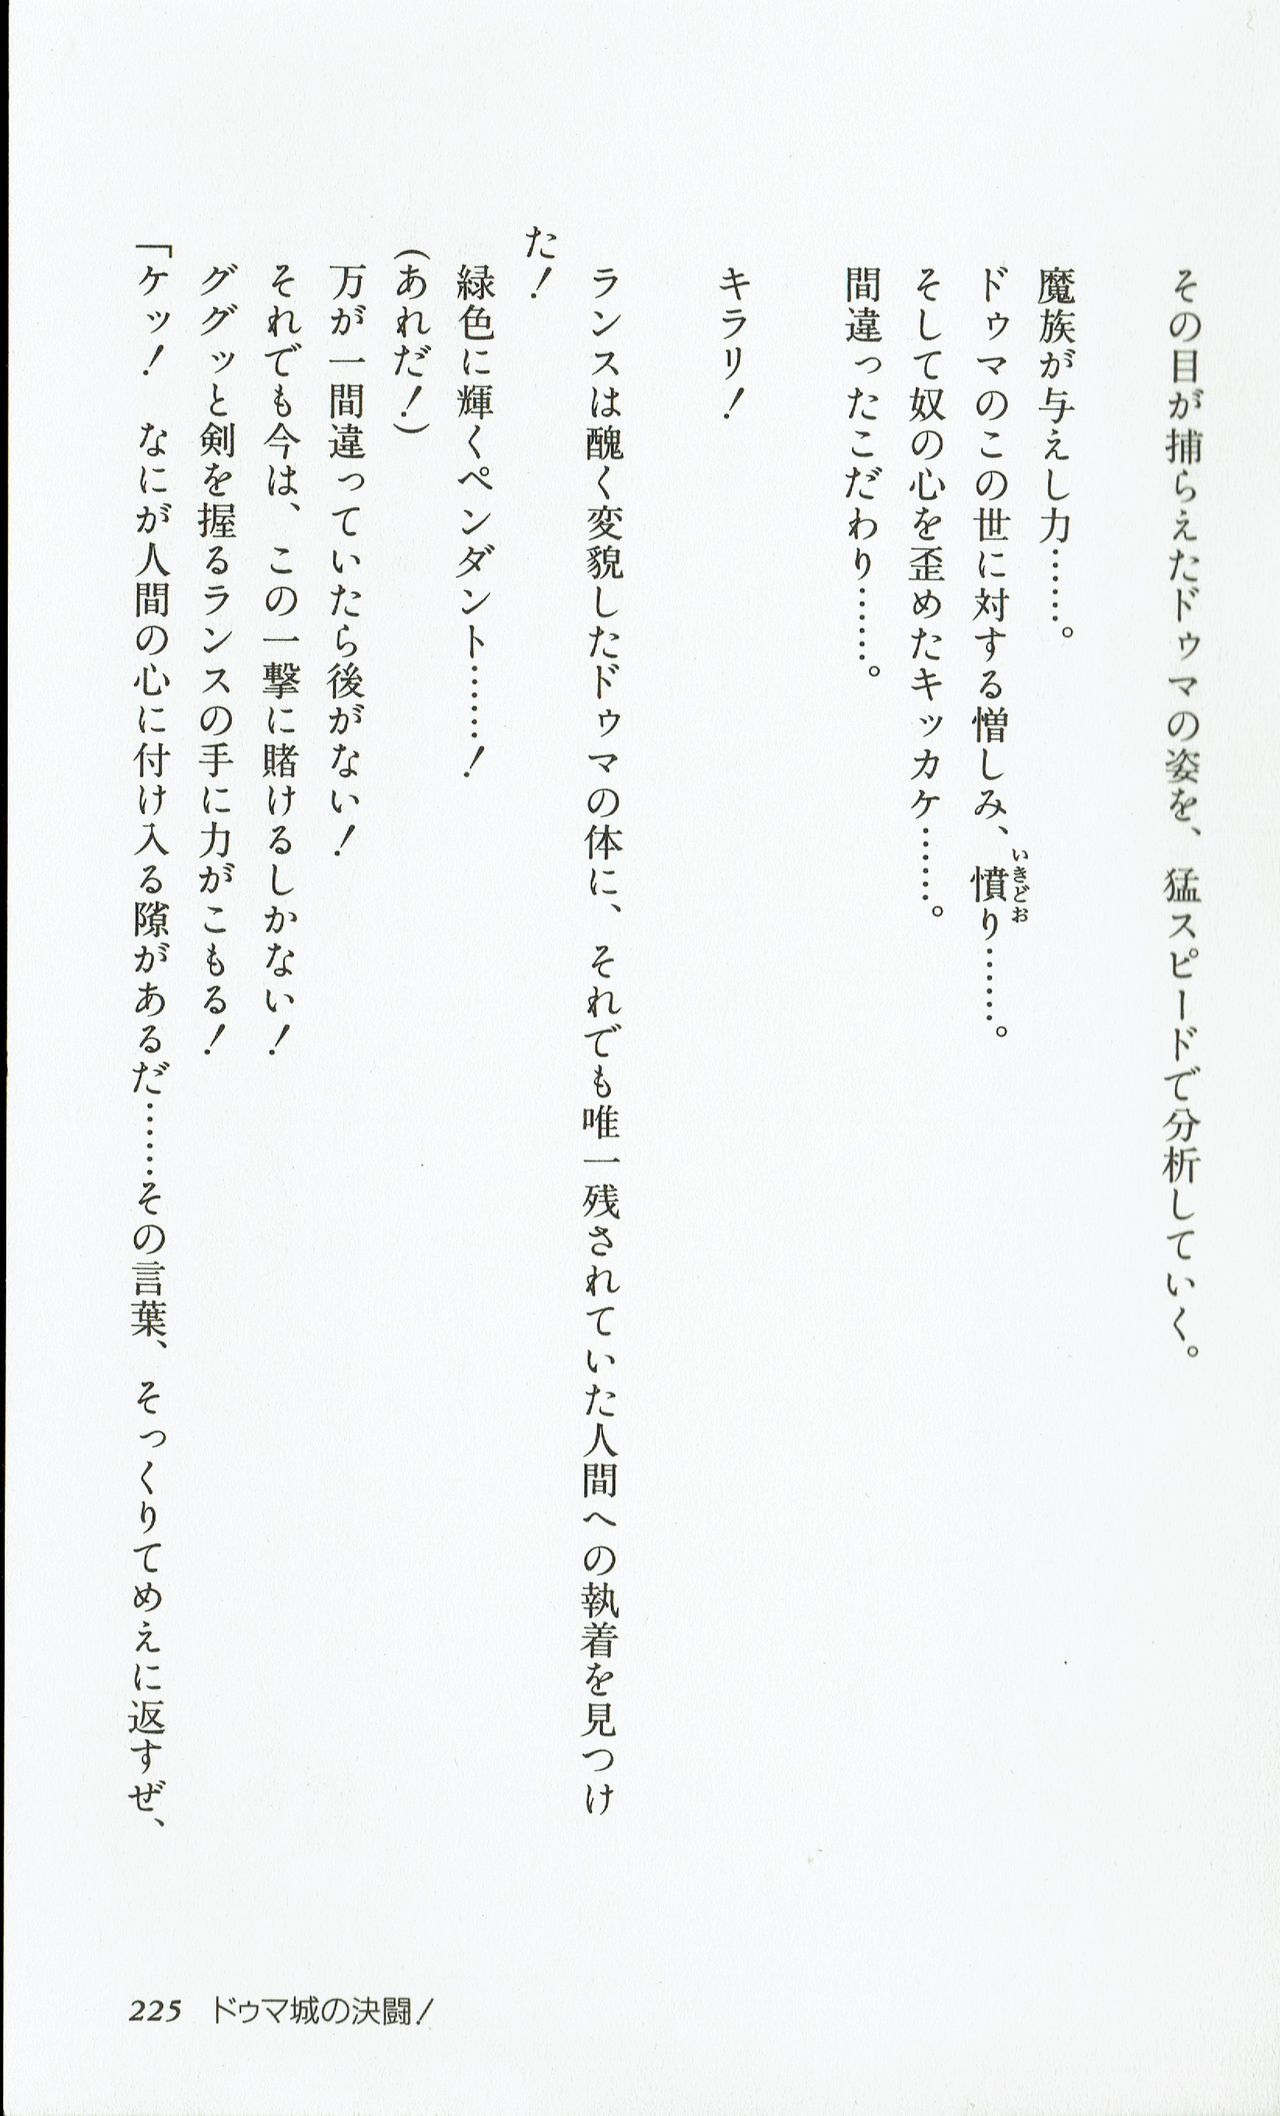 その目が捕らえたドゥマの姿を、猛スピードで分析していく。
魔族が与えし力……。
ドゥマのこの世に対する憎しみ、憤り……。
いきどお
そして奴の心を歪めたキッカケ……。
間違ったこだわり……。
キラリ！
ランスは醜く変貌したドゥマの体に、それでも唯一残されていた人間への執着を見つけ
た！
緑色に輝くペンダント……！
（あれだ！）
万が一間違っていたら後がない！
それでも今は、この一撃に賭けるしかない！
ググッと剣を握るランスの手に力がこもる！
「ケッ！　なにが人間の心に付け入る隙があるだ……その言葉、そっくりてめえに返すぜ、
225 ドゥマ城の決闘！